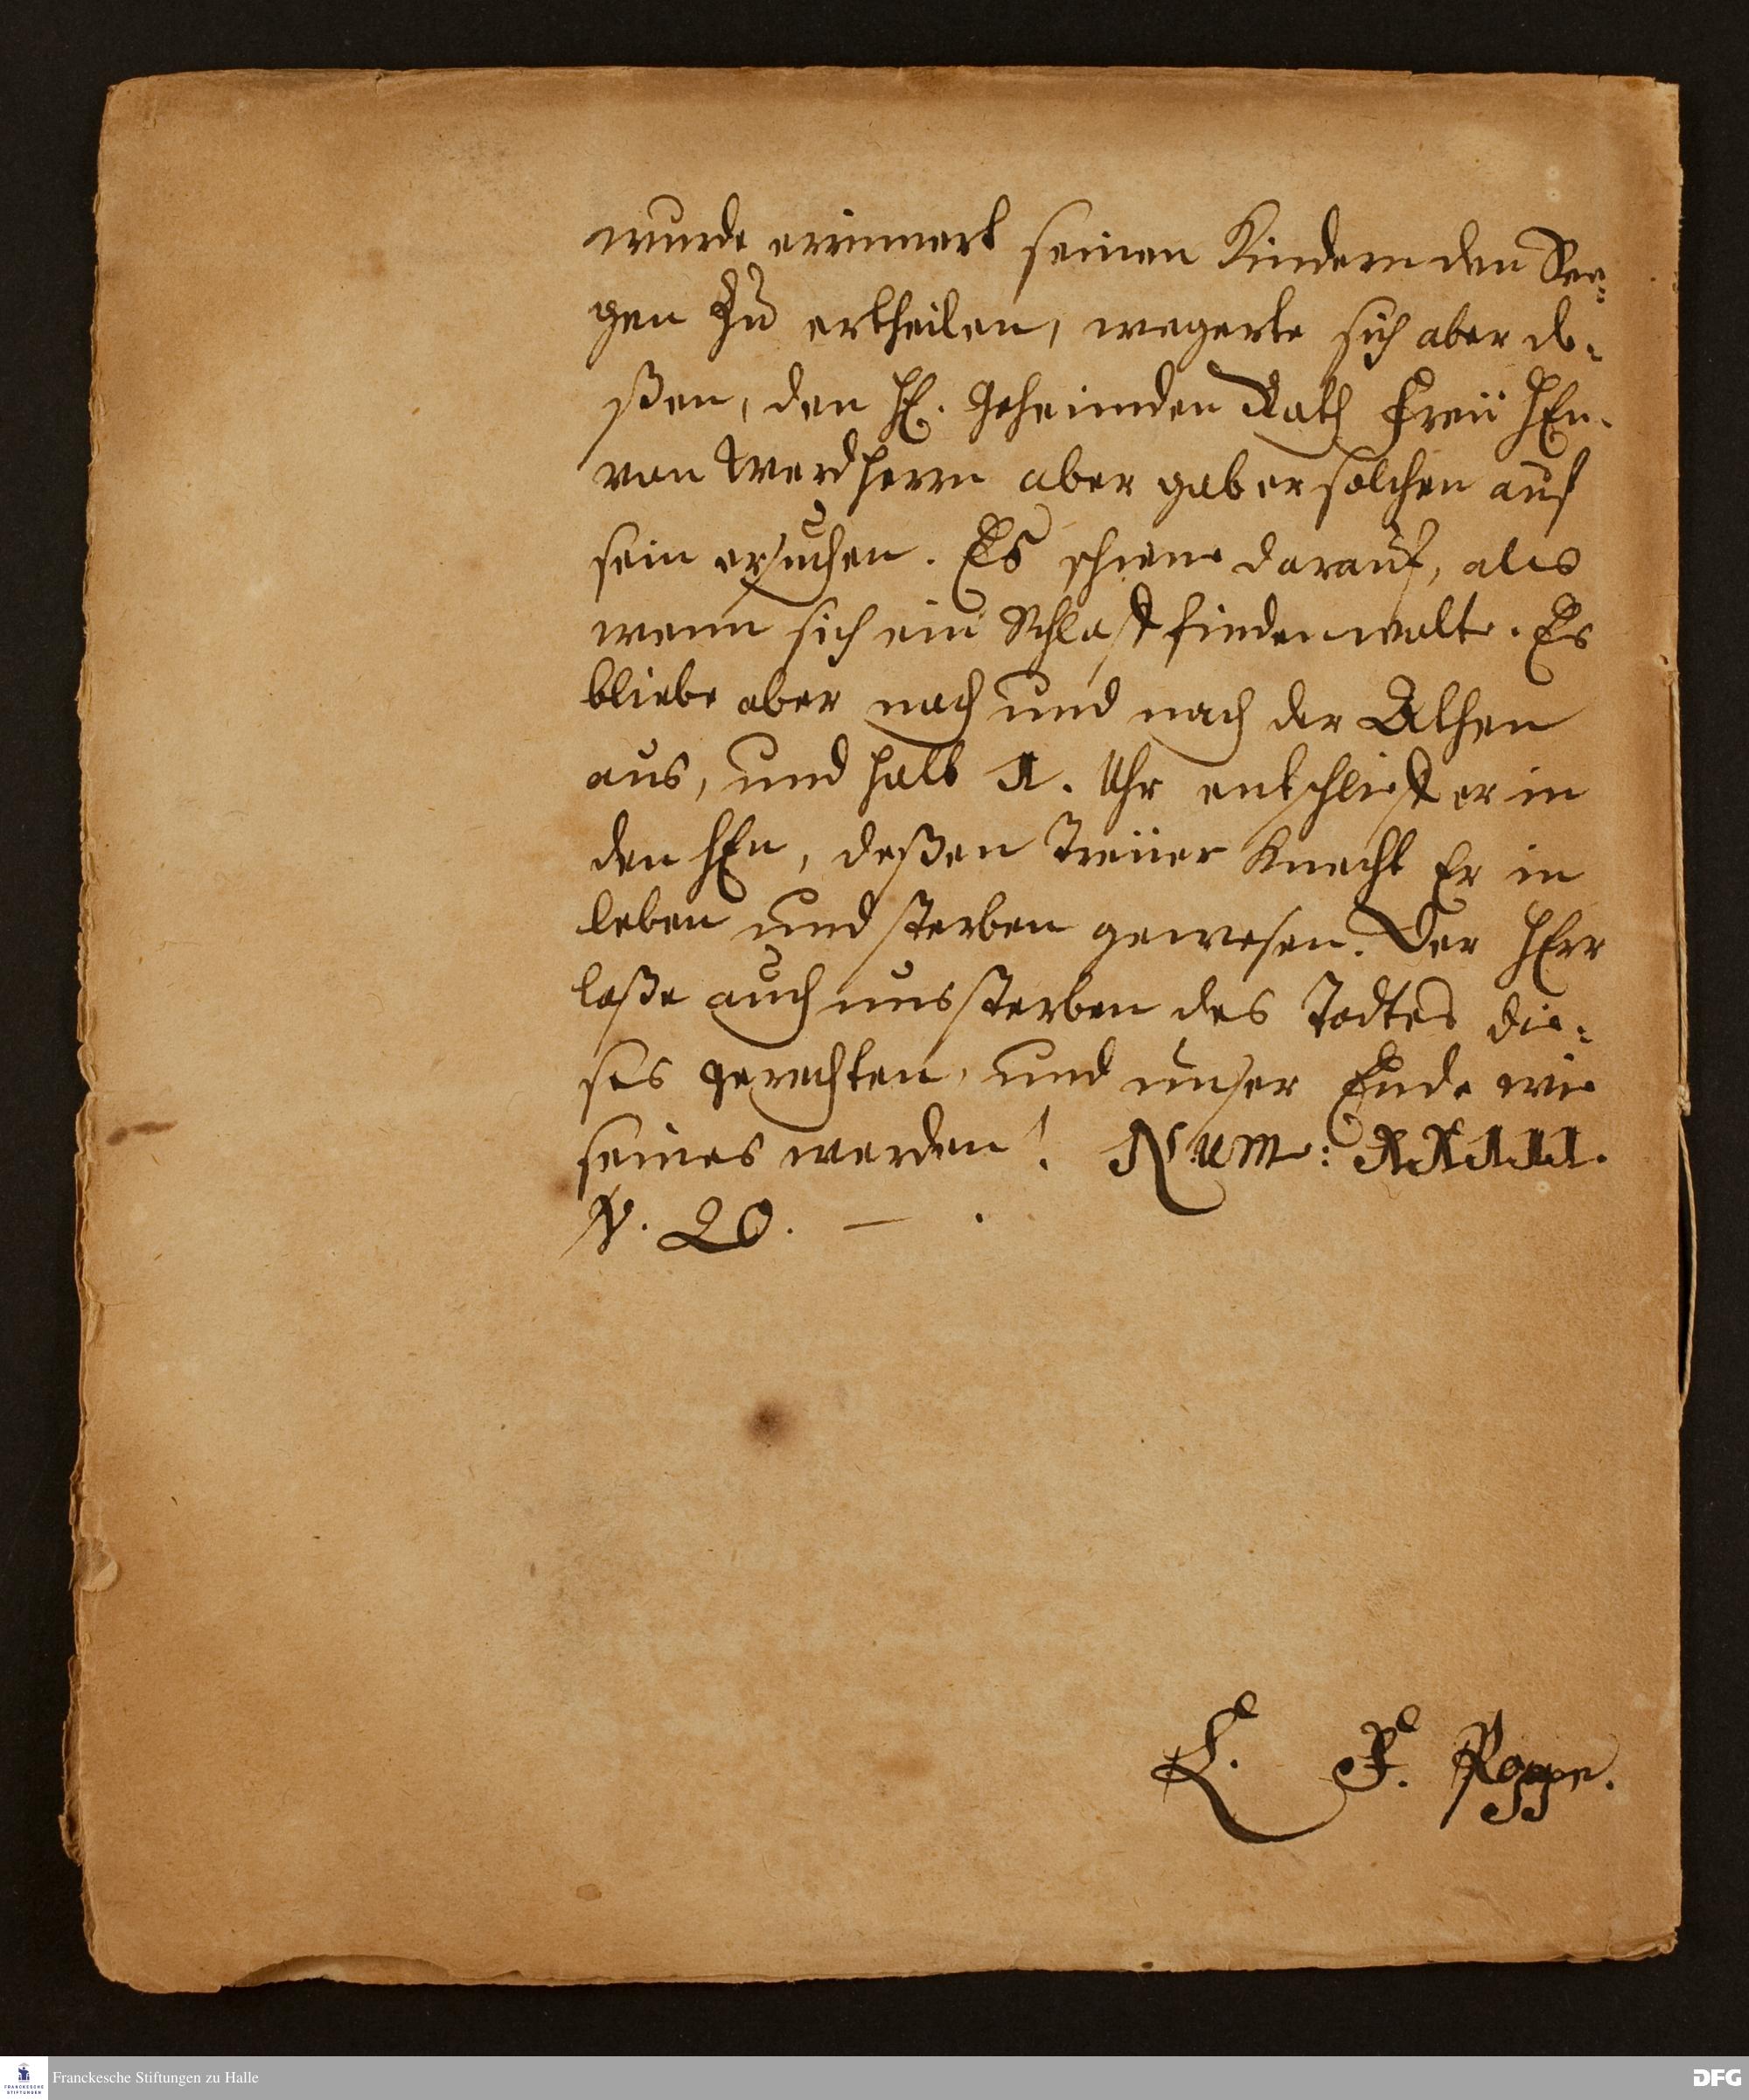 wurde erinnert seinen Kindern den See-
gen zu ertheilen, wegerte sich aber de-
ßen, den H. Geheimden Rath Freÿ HEn.
von Werdhern aber gab er solchen auf
sein ersuchen. Es schiene darauf, als
wenn sich ein Schlaff finden wolte. Es
bliebe aber nach und nach der Athem
aus, und halb 1. Uhr entschlieff er in
den HEn, deßen treüer Knecht Er in
leben und sterben gewesen. Der HErr
laße auch uns sterben des Todtes die-
ses gerechten, und unser Ende wie
seines werden! Num: XXIII.
V. 20. —
L. F. Roppe.
Franckesche Stiftungen zu Halle
FRANCKESCHE
STIFTUNGEN
DFG